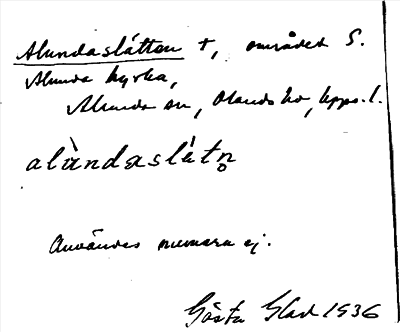 Alundaslätten +, området S.
Alunda kyrka,
Alunda sn, Olands hd, Upps. l.
alùndaslétn̥
Användes numera ej.
Gösta Glad 1936